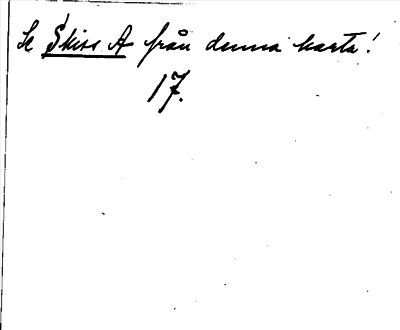 Se Skiss A från denna karta!
17.